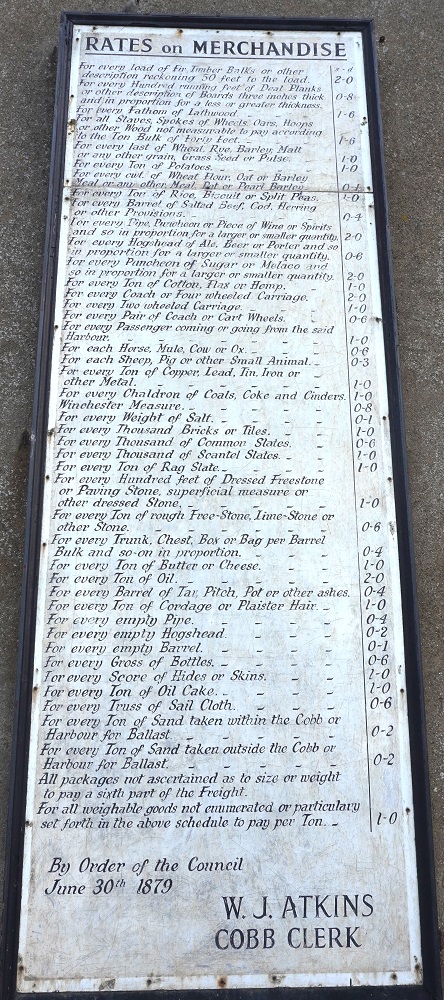 RATES on MERCHANDISE
s - d
For every load of Fir Timber Balks or other
description reckoning 50 feet to the load. 2-0
For every Hundred running feet of Deal Planks
or other description of Boards three inches thick
and in proportion for a less or greater thickness. 0-8
For every Fathom of Lathwood. 1-6
For all Staves, Spokes of Wheels, Oars, Hoops
or other Wood not measurable to pay according
to the Ton Bulk of Forty Feet. 1-6
For every last of Wheat, Rye, Barley, Malt
or any other grain, Grass Seed or Pulse. 1-0
For every Ton of Potatoes. 1-0
For every cwt. of Wheat Flour, Oat or Barley
Meal or any other Meal, Pot or Pearl Barley 0-1
For every Ton of Rice, Biscuit or Split Peas. 1-0
For every Barrel of Salted Beef, Cod, Herring
or other Provisions. 0-4
For every Pipe, Puncheon or Piece of Wine or Spirits
and so in proportion for a larger or smaller quantity. 2-0
For every Hogshead of Ale, Beer or Porter and so
in proportion for a larger or smaller quantity. 0-6
For every Puncheon of Sugar or Melaco and
so in proportion for a larger or smaller quantity. 2-0
For every Ton of Cotton, Flax or Hemp. 1-0
For every Coach or Four wheeled Carriage. 2-0
For every Two wheeled Carriage. 1-0
For every Pair of Coach or Cart Wheels. 0-6
For every Passenger coming or going from the said
Harbour. 1-0
For each Horse, Mule, Cow or Ox. 0-6
For each Sheep, Pig or other Small Animal. 0-3
For every Ton of Copper, Lead, Tin, Iron or
other Metal. 1-0
For every Chaldron of Coals, Coke and Cinders. 1-0
Winchester Measure. 0-8
For every Weight of Salt. 0-1
For every Thousand Bricks or Tiles. 1-0
For every Thousand of Common Slates. 0-6
For every Thousand of Scantel Slates. 1-0
For every Ton of Rag Slate. 1-0
For every Hundred feet of Dressed Freestone
or Paving Stone, superficial measure or
other dressed Stone. 1-0
For every Ton of rough Free-Stone, Lime-Stone or
other Stone. 0-6
For every Trunk, Chest, Box or Bag per Barrel
Bulk and so-on in proportion. 0-4
For every Ton of Butter or Cheese. 1-0
For every Ton of Oil. 2-0
For every Barrel of Tar, Pitch, Pot or other ashes. 0-4
For every Ton of Cordage or Plaister Hair. 1-0
For every empty Pipe. 0-4
For every empty Hogshead. 0-2
For every empty Barrel. 0-1
For every Gross of Bottles. 0-6
For every Score of Hides or Skins. 1-0
For every Ton of Oil Cake. 1-0
For every Truss of Sail Cloth. 0-6
For every Ton of Sand taken within the Cobb or
Harbour for Ballast. 0-2
For every Ton of Sand taken outside the Cobb or
Harbour for Ballast. 0-2
All packages not ascertained as to size or weight
to pay a sixth part of the Freight.
For all weighable goods not enumerated or particulary
set forth in the above schedule to pay per Ton. 1-0
By Order of the Council
June 30th 1879
W. J. ATKINS
COBB CLERK